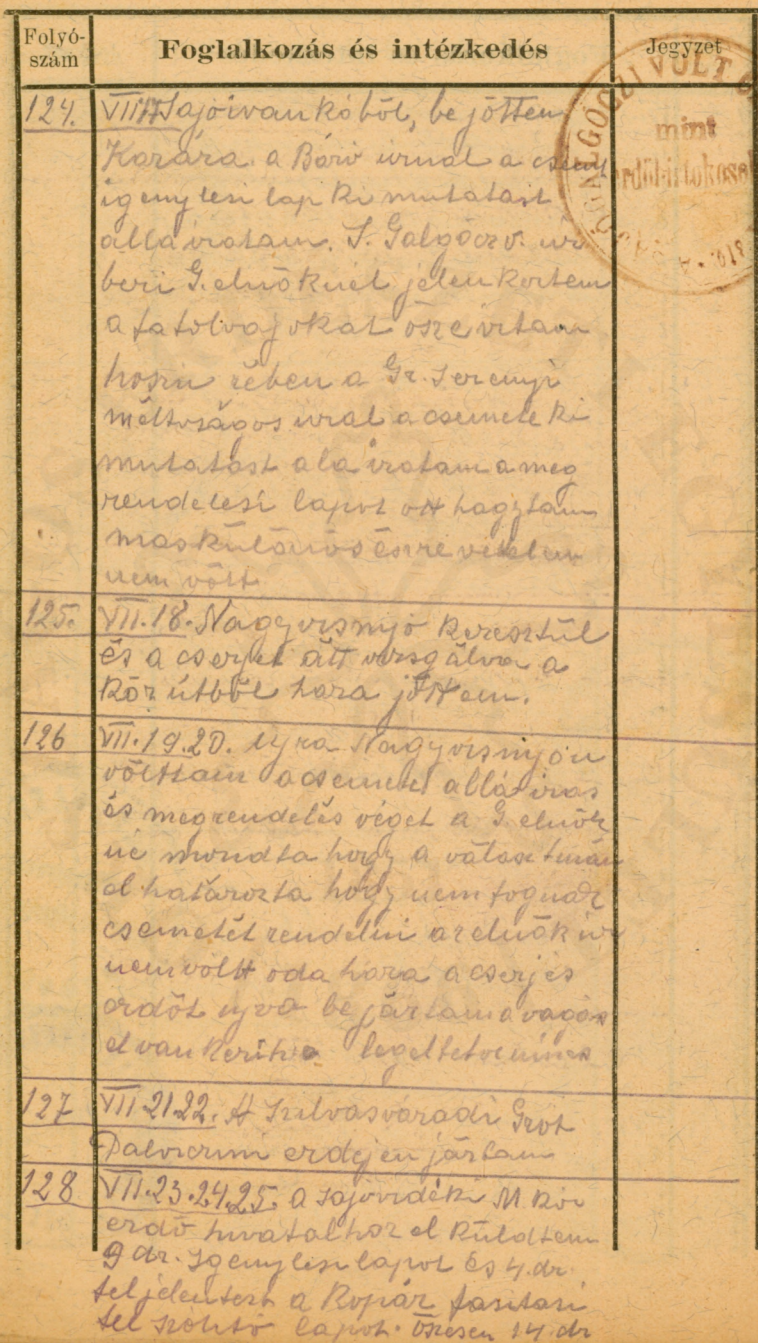 Folyó-
szám
Foglalkozás és intézkedés
Jegyzet
124. VII Sajóivankából, be jöttem
Karára a Báró urnal a
igenylesi lap ki mutatast
alla iratam. S. Galgóczi
beri G. elnöknél jelenkeztem
a fatolvajokat ösze irtam
a Gr. Serenyi
méltoságos ural a csemete ki
mutatást ala iratam a meg
rendelesi lapot ott hagytam
mas különös észre vételem
nem vólt
125. VII. 18. Nagyvisnyó keresztül
és a cserjet átt vizsgálva a
kör útból haza jöttem.
126 VII. 19. 20. ujra Nagyvisnyón
vólttam a csemete allá iras
és megrendelés véget a G. elnök
né mondta hogy a választmán
el határozta hogy nem fognak
csemetét rendelni az elnök ur
nem vóltt oda haza a cserjés
erdőt ujva be jártam a vagás
el van keritve legeltetve nincs
127 VII 21 22. A Szilvasváradi Gróf
Palvicini erdejen jártam
128 VII. 23. 24. 25. a sajovidéki M. kir
erdő hivatalhoz el küldtem
9 dr. igenylesi lapot és 4. dr
fel jelentest a kopár fasitasi
fel szólitó lapot. öszesen 14. dr
VOLT
mint